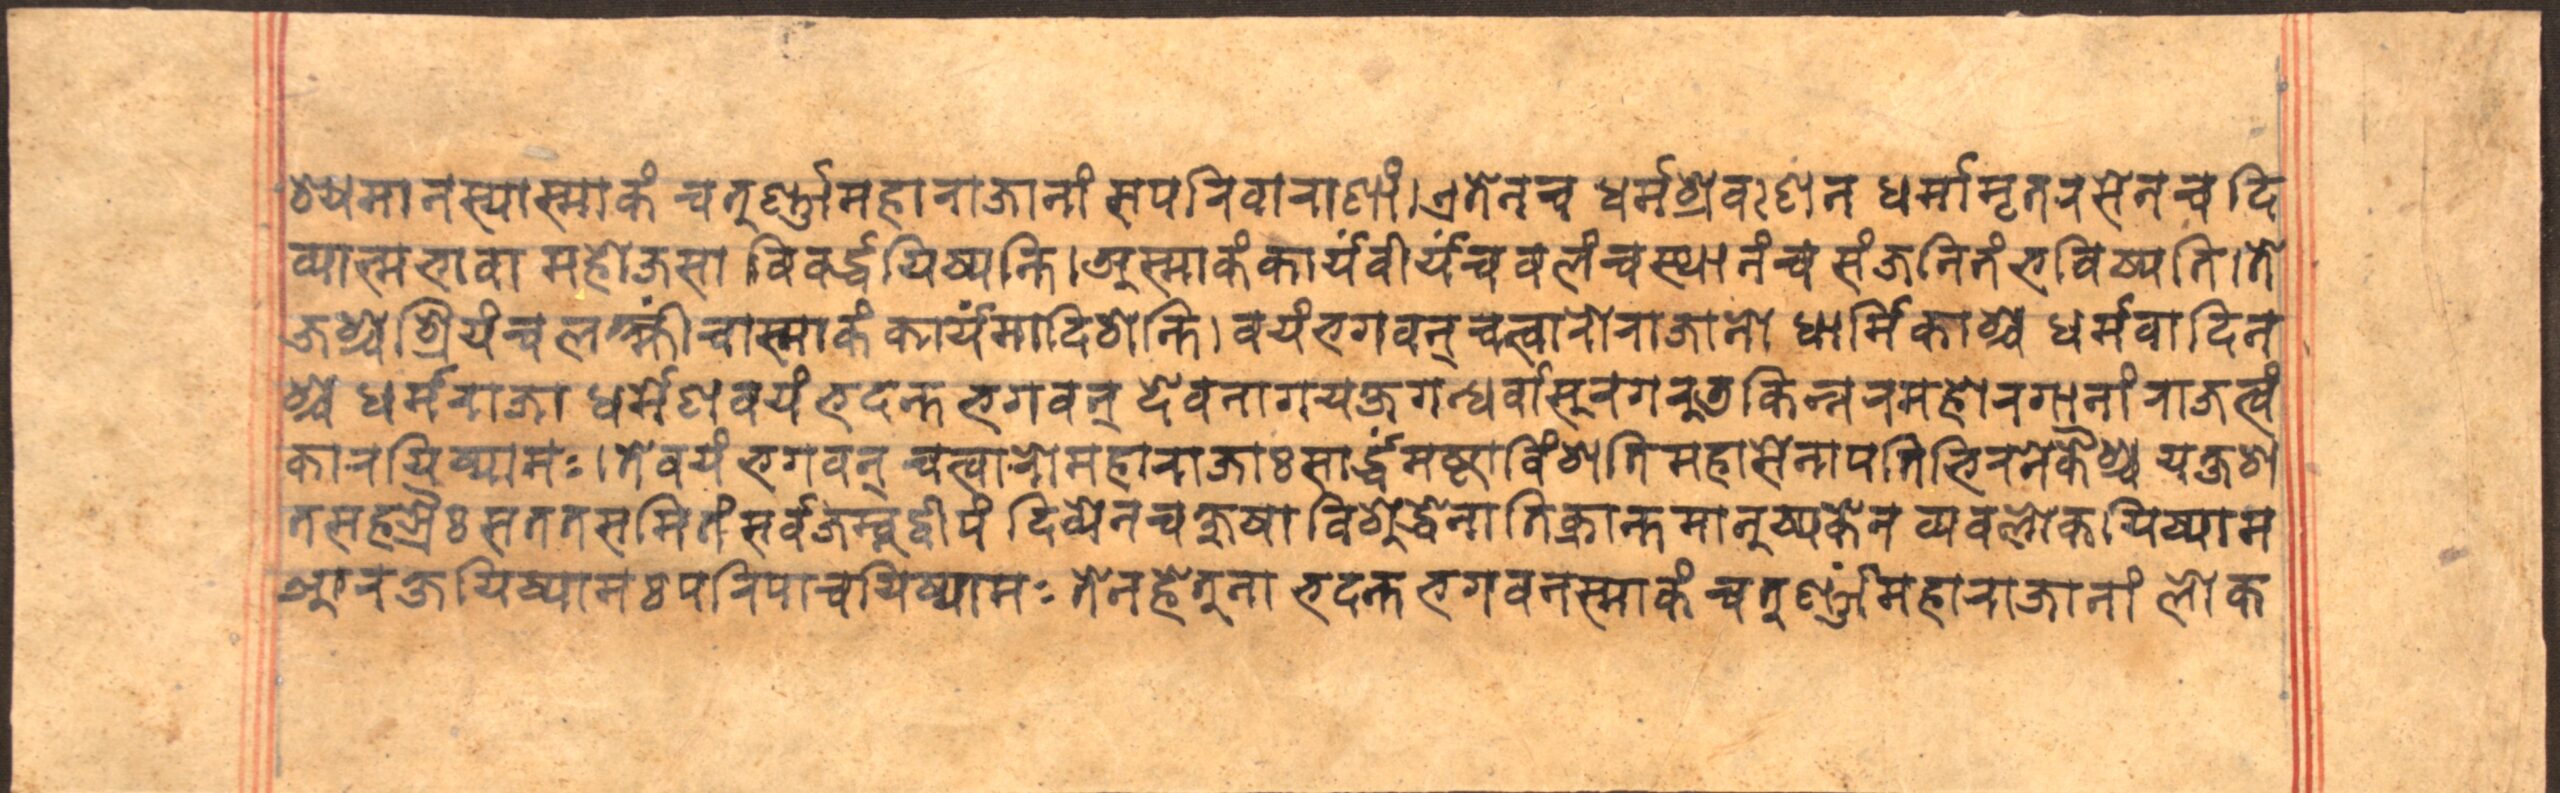 श्यमानस्यास्माकं चतुर्ण्णां महाराजानां सपरिवाराणां। एतेन च धर्मश्रवःणेन धर्मामृतरसेन च दि
व्यात्मभावा महोजसा विवर्द्धयिष्यन्ति। अस्माकं कार्यं वीर्यं च वलं च स्थानं च संजनितं भविष्यति। ते
जश्च श्रियं च लक्ष्मीं चास्माकं कार्यमादिशन्ति। वयं भगवन् चत्वारो राजानो धार्मिकाश्च धर्मवादिन
श्च धर्मराजा धर्मेण वयं भदन्त भगवन् देवनागयक्षगन्धर्वासुरगरुडकिन्नरमहोरगानां राजत्वं
कारयिष्यामः। ते वयं भगवन् चत्वारो महाराजाः सार्द्धमष्टाविंशति महासेनापतिभिरनेकैश्च यक्षश
तसहस्रैः सततसमितं सर्वजम्बुद्वीपं दिव्येन चक्षुषा विशुद्धेनातिक्रान्तमानुष्यकेन व्यवलोकयिष्याम
आरक्षयिष्यामः परिपाचयिष्यामः तेन हेतुना भदन्त भगवनस्माकं चतुर्ण्णां महाराजानां लोक